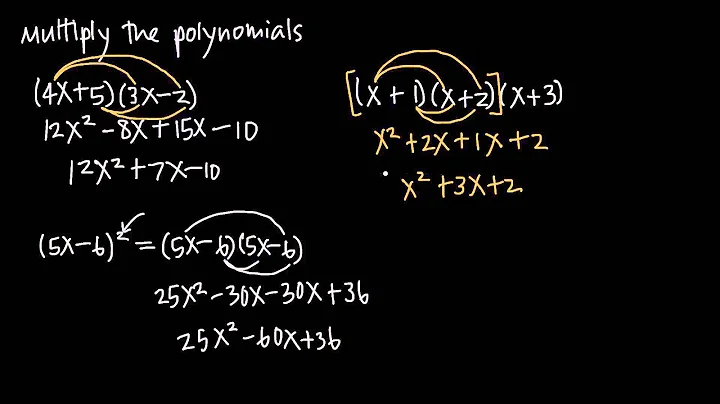 Multiply the polynomials
(4x+5)(3x-2)
12x² - 8x + 15x - 10
12x² + 7x - 10
[(x + 1)(x+2)](x+3)
x² + 2x + 1x + 2
x² + 3x + 2
(5x-6)² = (5x-6)(5x-6)
25x² - 30x - 30x + 36
25x² - 60x + 36